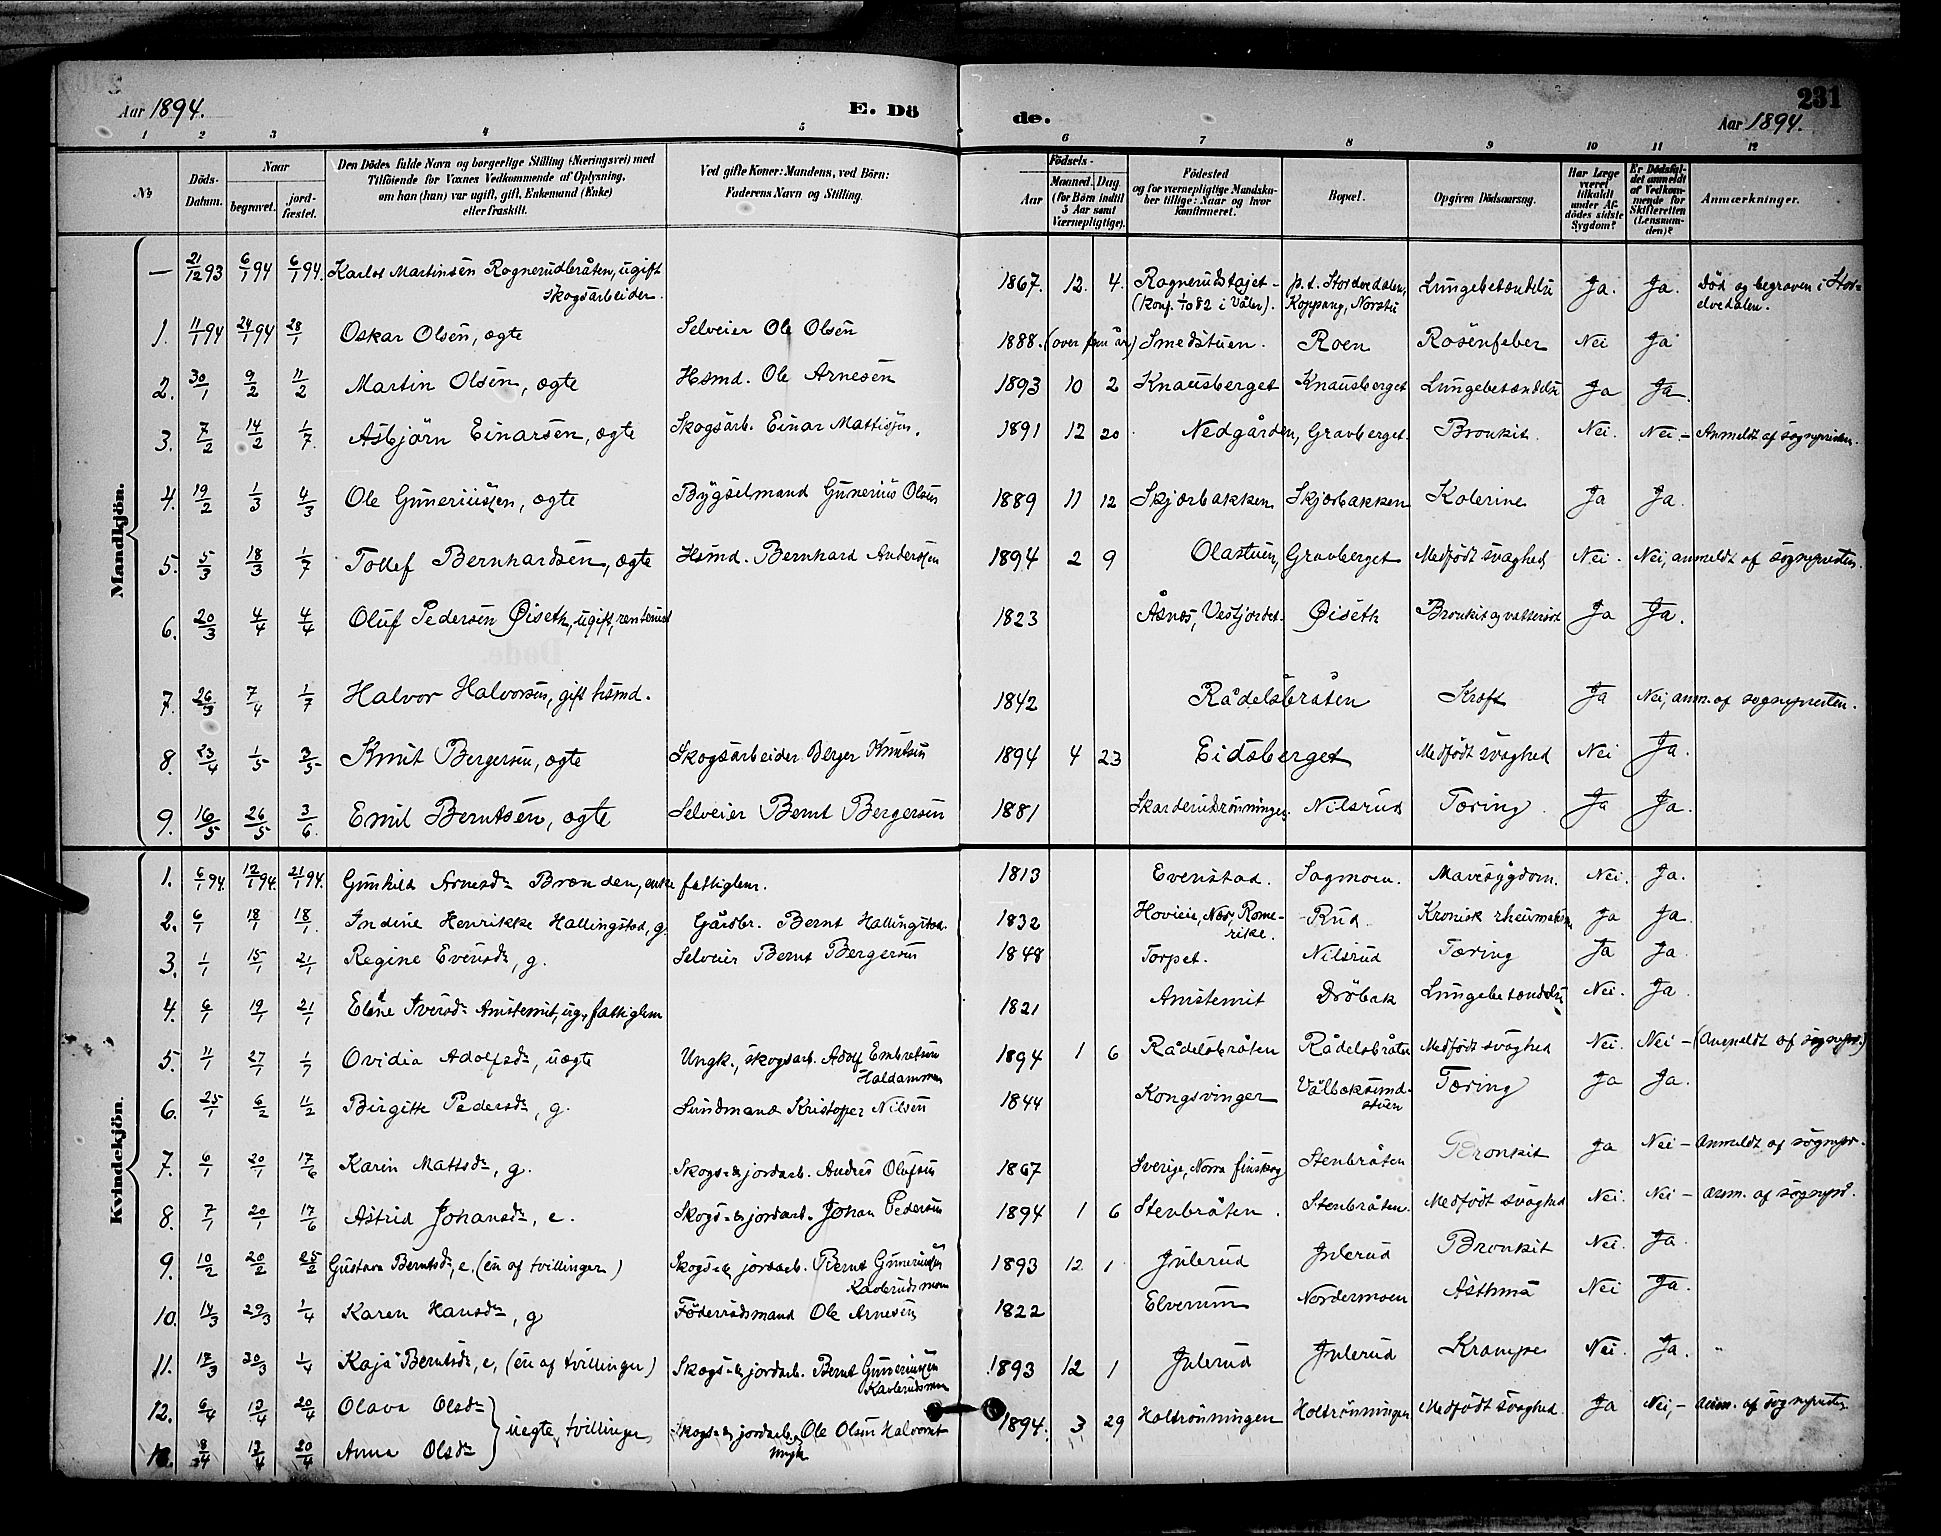 Aar 1894. E. Dö de. 231
Aar 1894.
1 2 3 4 5 6 7 8 9 10 11 12
No
Döds-Datum.
Naar
begravet. jordfæstet.
Den Dödes fulde Navn og borgerlige Stilling (Næringsvei) med
Tilföiende for Voxnes Vedkommende af Oplysning,
om han (hun) var ugift, gift, Enkemand (Enke)
eller fraskilt.
Ved gifte Koner: Mandens, ved Börn:
Faderens Navn og Stilling.
Födsels-
Aar Maaned. Dag
(for Børn indtil
5 Aar samt
Værnepligtige).
Födested
og for værnepligtige Mandskaber tillige: Naar og hvor
konfirmeret.
Bopæl.
Opgiven Dödsaarsag.
Har Læge
været
tilkaldt
under Afdödes sidste
Sygdom?
Er Dödsfaldet anmeldt
af Vedkommende for
Skifteretten
(Lensmanden)?
Anmærkninger.
Mandkjön.
— 21/12 93 6/1 94 6/1 94. Karlos Martinsen Rognerudbråten, ugift 1867. 12. 4. Rognerudstajet - p.t. Stordvedalen, Lungebetændelse Ja. Ja. Död og begraven i Stor-
skogsarbeider. (konf. 1/10 82 i Våler). Koppang, Norstu elvedalen.
1. 11/1 94 24/1 94 28/1 Oskar Olsen, ægte Selveier Ole Olsen 1888. (over fem år) Smedstuen. Roen Rosenfeber Nei Ja
2. 30/1 9/2 11/2 Martin Olsen, ægte Hsmd. Ole Arnesen 1893 10 2 Knausberget Knausberget Lungebetændelse Ja Ja.
3. 7/2 14/2 1/7. Asbjörn Einarsen, ægte Skogsarb. Einar Mattisen. 1891 12 20 Nedgården, Gravberget. Bronkit. Nei. Nei - Anmeldt af sognepresten.
4. 19/2 1/3 4/3 Ole Guneriussen, ægte Bygselmand Gunerius Olsen 1889 11 12 Skjærbakken Skjærbakken Kolerine Ja Ja.
5. 5/3 18/3 1/7 Tollef Bernhardsen, ægte Hsmd. Bernhard Anderssen 1894 2 9 Olastuen, Gravberget Medfödt svaghed Nei. Nei, anmeldt af sognepresten.
6. 20/3 4/4 4/4 Oluf Pedersen Øiseth, ugift, rentenist 1823 Åsnes, Vestjordet. Øiseth Bronkit og vattersot Ja Ja.
7. 26/3 7/4 1/7 Halvor Halvorsen, gift hsmd. 1842 Rådelsbråten Kræft Ja Nei, anm. af sognepresten.
8. 23/4 1/5 3/5 Knut Bergersen, ægte Skogsarbeider Berger Knutsen 1894 4 23 Eidsberget Medfödt svaghed Nei Ja.
9. 16/5 26/5 3/6. Emil Berntsen, ægte Selveier Bernt Bergersen 1881 Skarderudrönningen. Nilsrud Tæring. Ja Ja.
Kvindekjön.
1. 6/1 94. 12/1 94. 21/1 94. Gunhild Arnesdr Brænden, enke fattiglem. 1813 Evenstad. Sagmoen. Mavesygdom. Nei. Ja.
2. 6/1 18/1 18/1. Indine Henrikke Hallingstad, g. Gårdbr. Bernt Hallingstad. 1832 Hovieie, Ned, Rome- Rud. Kronisk rheumatisme Ja Ja.
rike.
3. 1/1 15/1 21/1 Regine Evensdr, g. Selveier Bernt Bergersen 1848 Torpet. Nilsrud Tæring Ja Ja.
4. 6/1 19/1 21/1 Eline Iversdr Amstemit, ug. fattiglem 1821 Amstemit Dröbak Lungebetændelse Nei. Ja.
5. 11/1 27/1 1/7 Ovidia Adolfsdr, uægte Ungk., skogsarb. Adolf Embretsen 1894 1 6 Rådelsbråten Rådelsbråten Medfödt svaghed Nei. Nei - (Anmeldt af sognepr.)
Haldammen
6. 25/1 6/2 11/2 Birgitte Pedersdr, g. Sundmand Kristoffer Nilsen 1844 Kongsvinger Vålbæksund- Tæring Ja Ja.
stuen
7. 6/1 20/1 17/6 Karin Mattsdr, g. Skogs- & jordarb. Andres Olufsen 1867 Sverige, Norra finskog Stenbråten Bronkit Ja Nei - Anmeldt af sognepr.
8. 7/1 20/1 17/6 Astrid Johansdr, e. Skogs- & jordarb. Johan Pedersen 1894 1 6 Stenbråten. Stenbråten. Medfödt svaghed Nei. Nei - anm. af sognepr.
9. 10/2 20/2 25/2 Gustava Berntsdr, e. (en af tvillinger) Skogs- & jordarb. Bernt Guneriussen 1893 12. 1 Julerud Julerud Bronkit Nei. Ja.
Kavlerudsmoen
10. 14/3 29/3 1/4 Karen Hansdr, g Föderådsmand Ole Arnesen 1822 Elverum Nordermoen Asthma Nei Ja.
11. 17/3 30/3 1/4 Kaja Berntsdr, e, (en af tvillinger) Skogs- & jordarb. Bernt Guneriussen 1893 12 1 Julerud Julerud Krampe Nei. Ja.
Kavlerudsmoen
12. 6/4 13/4 20/4 Olava Olsdr } uægte tvillinger Skogs- & jordarb. Ole Olsen Halvorset 1894. 3 29 Holtrönningen Holtrönningen Medfödt svaghed. Ja Nei, - anm. af sognepresten
ungk.
13. 8/4 13/4 20/4 Anna Olsdr